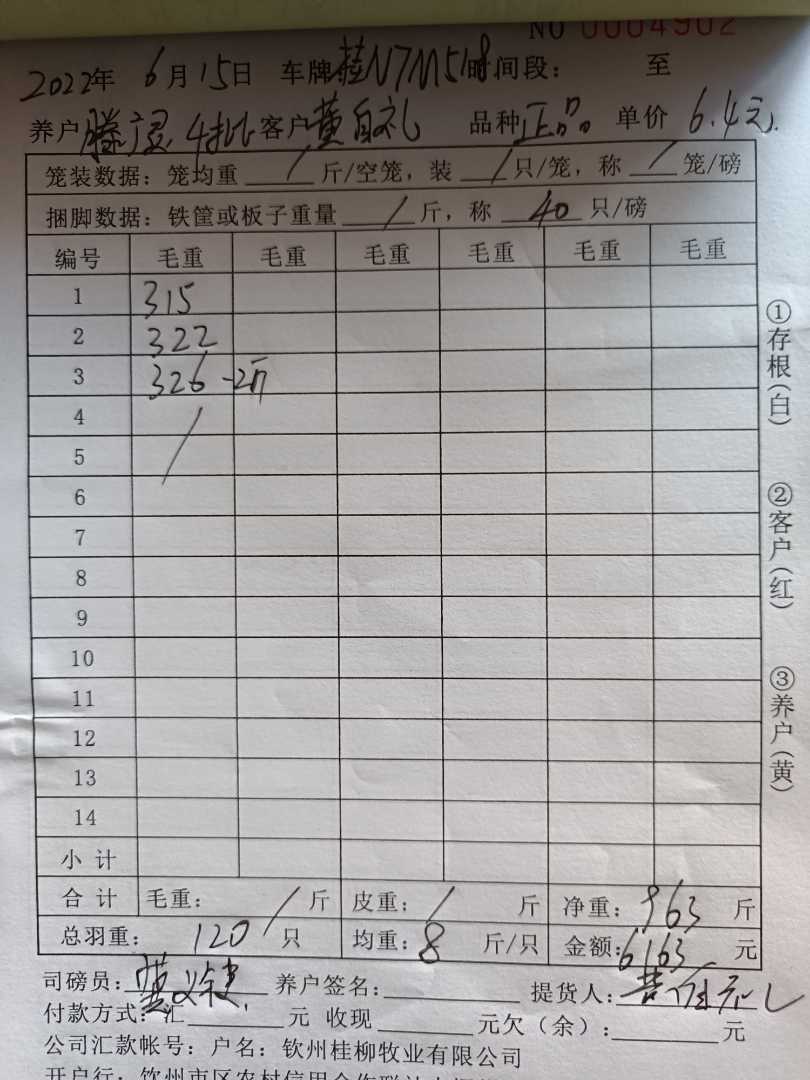 NO 0004902
2022年 6月15日 车牌桂N7M518时间段: 至
养户滕灵4批客户黄自礼 品种正品 单价 6.4元
笼装数据: 笼均重 / 斤/空笼, 装 / 只/笼, 称 / 笼/磅
捆脚数据: 铁筐或板子重量 / 斤, 称 40 只/磅
编号 毛重 毛重 毛重 毛重 毛重 毛重
1 315
2 322
3 326 -2斤
4 /
5
6
7
8
9
10
11
12
13
14
小 计
合 计 毛重: / 斤 皮重: / 斤 净重: 963 斤
总羽重: 120 只 均重: 8 斤/只 金额: 6163 元
司磅员: 养户签名: 提货人:
付款方式: 汇 元 收现 元欠(余): 元
公司汇款帐号: 户名: 钦州桂柳牧业有限公司
开户行: 钦州市区农村信用合作联社
①存根(白)
②客户(红)
③养户(黄)